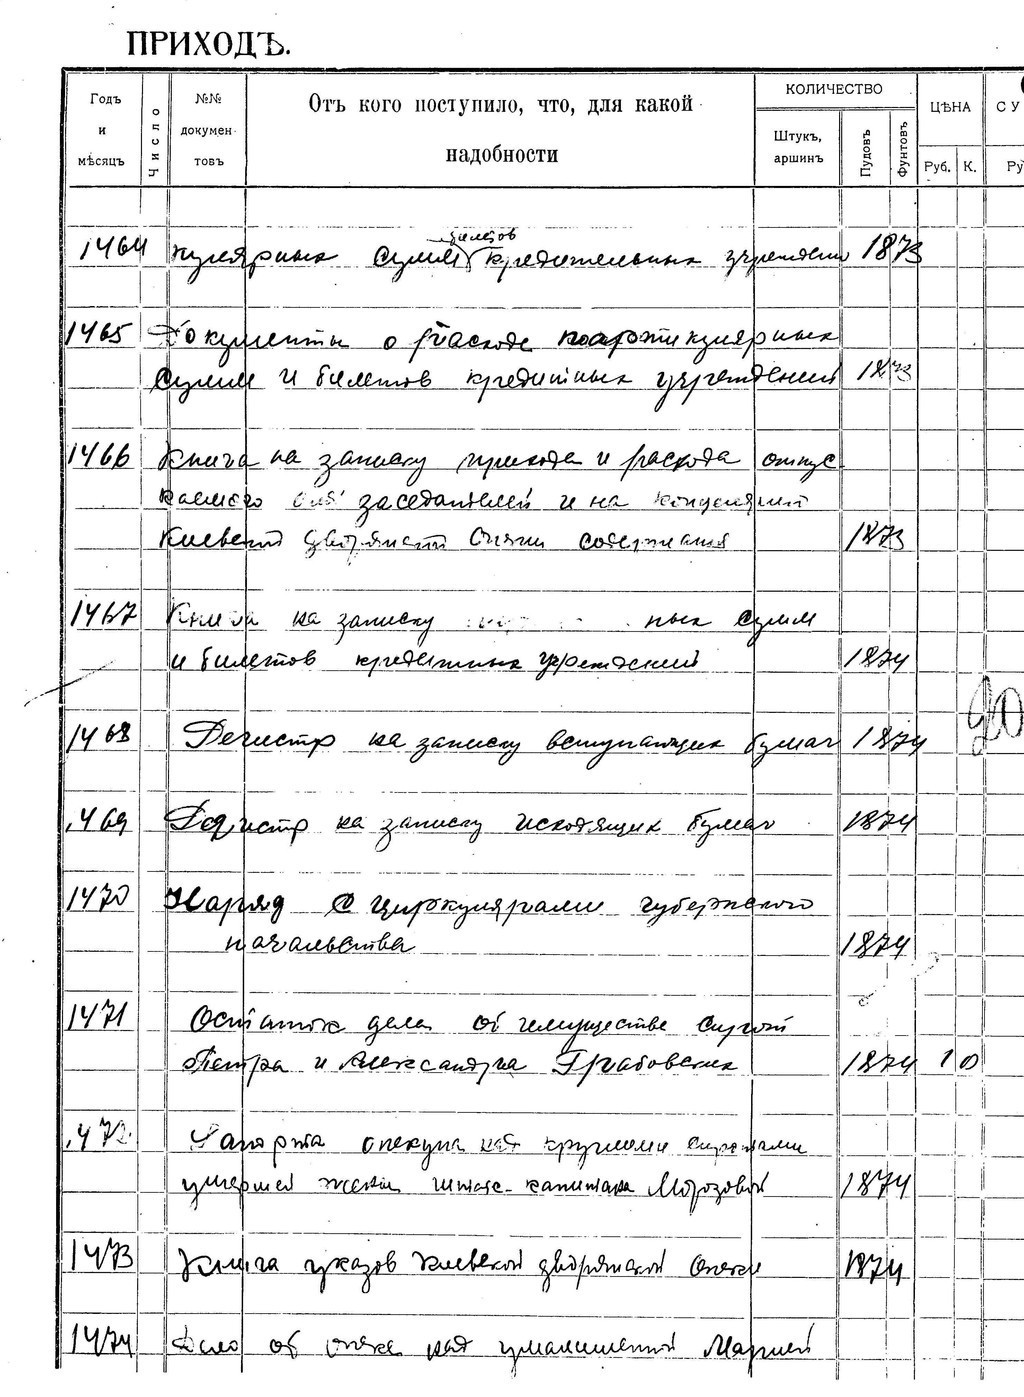 ПРИХОДЪ.
Годъ и мѣсяцъ
Число
№№ документовъ
Отъ кого поступило, что, для какой надобности
КОЛИЧЕСТВО
Штукъ, аршинъ
Пудовъ
Фунтовъ
ЦѢНА
Руб. К.
СУ
Ру
билетов
1464 кулярных сумм кредительных учрежден 1873
1465 Документы о расходе партикулярных
сумм и билетов кредитных учреждений 1873
1466 Книга на записку прихода и расхода отпус
каемого для заседателей и на канцелярии
Киевской дворянской Опеки содержания 1873
1467 Книга на записку ных сумм
и билетов кредитных учреждений 1874
20
1468 Регистр на записку вступающих бумаг 1874
469 Регистр на записку исходящих бумаг 1874
1470 Наряд с циркулярами губернского
начальства 1874
1471 Остаток дела об имуществе сирот
Петра и Александра Грабовских 1874 10
472 Рапорта опекуна над круглыми сиротами
умершей жены штабс-капитана Морозовой 1874
1473 Книга указов Киевской дворянской Опеки 1874
1474 Дело об опеке над умалишенной Марией